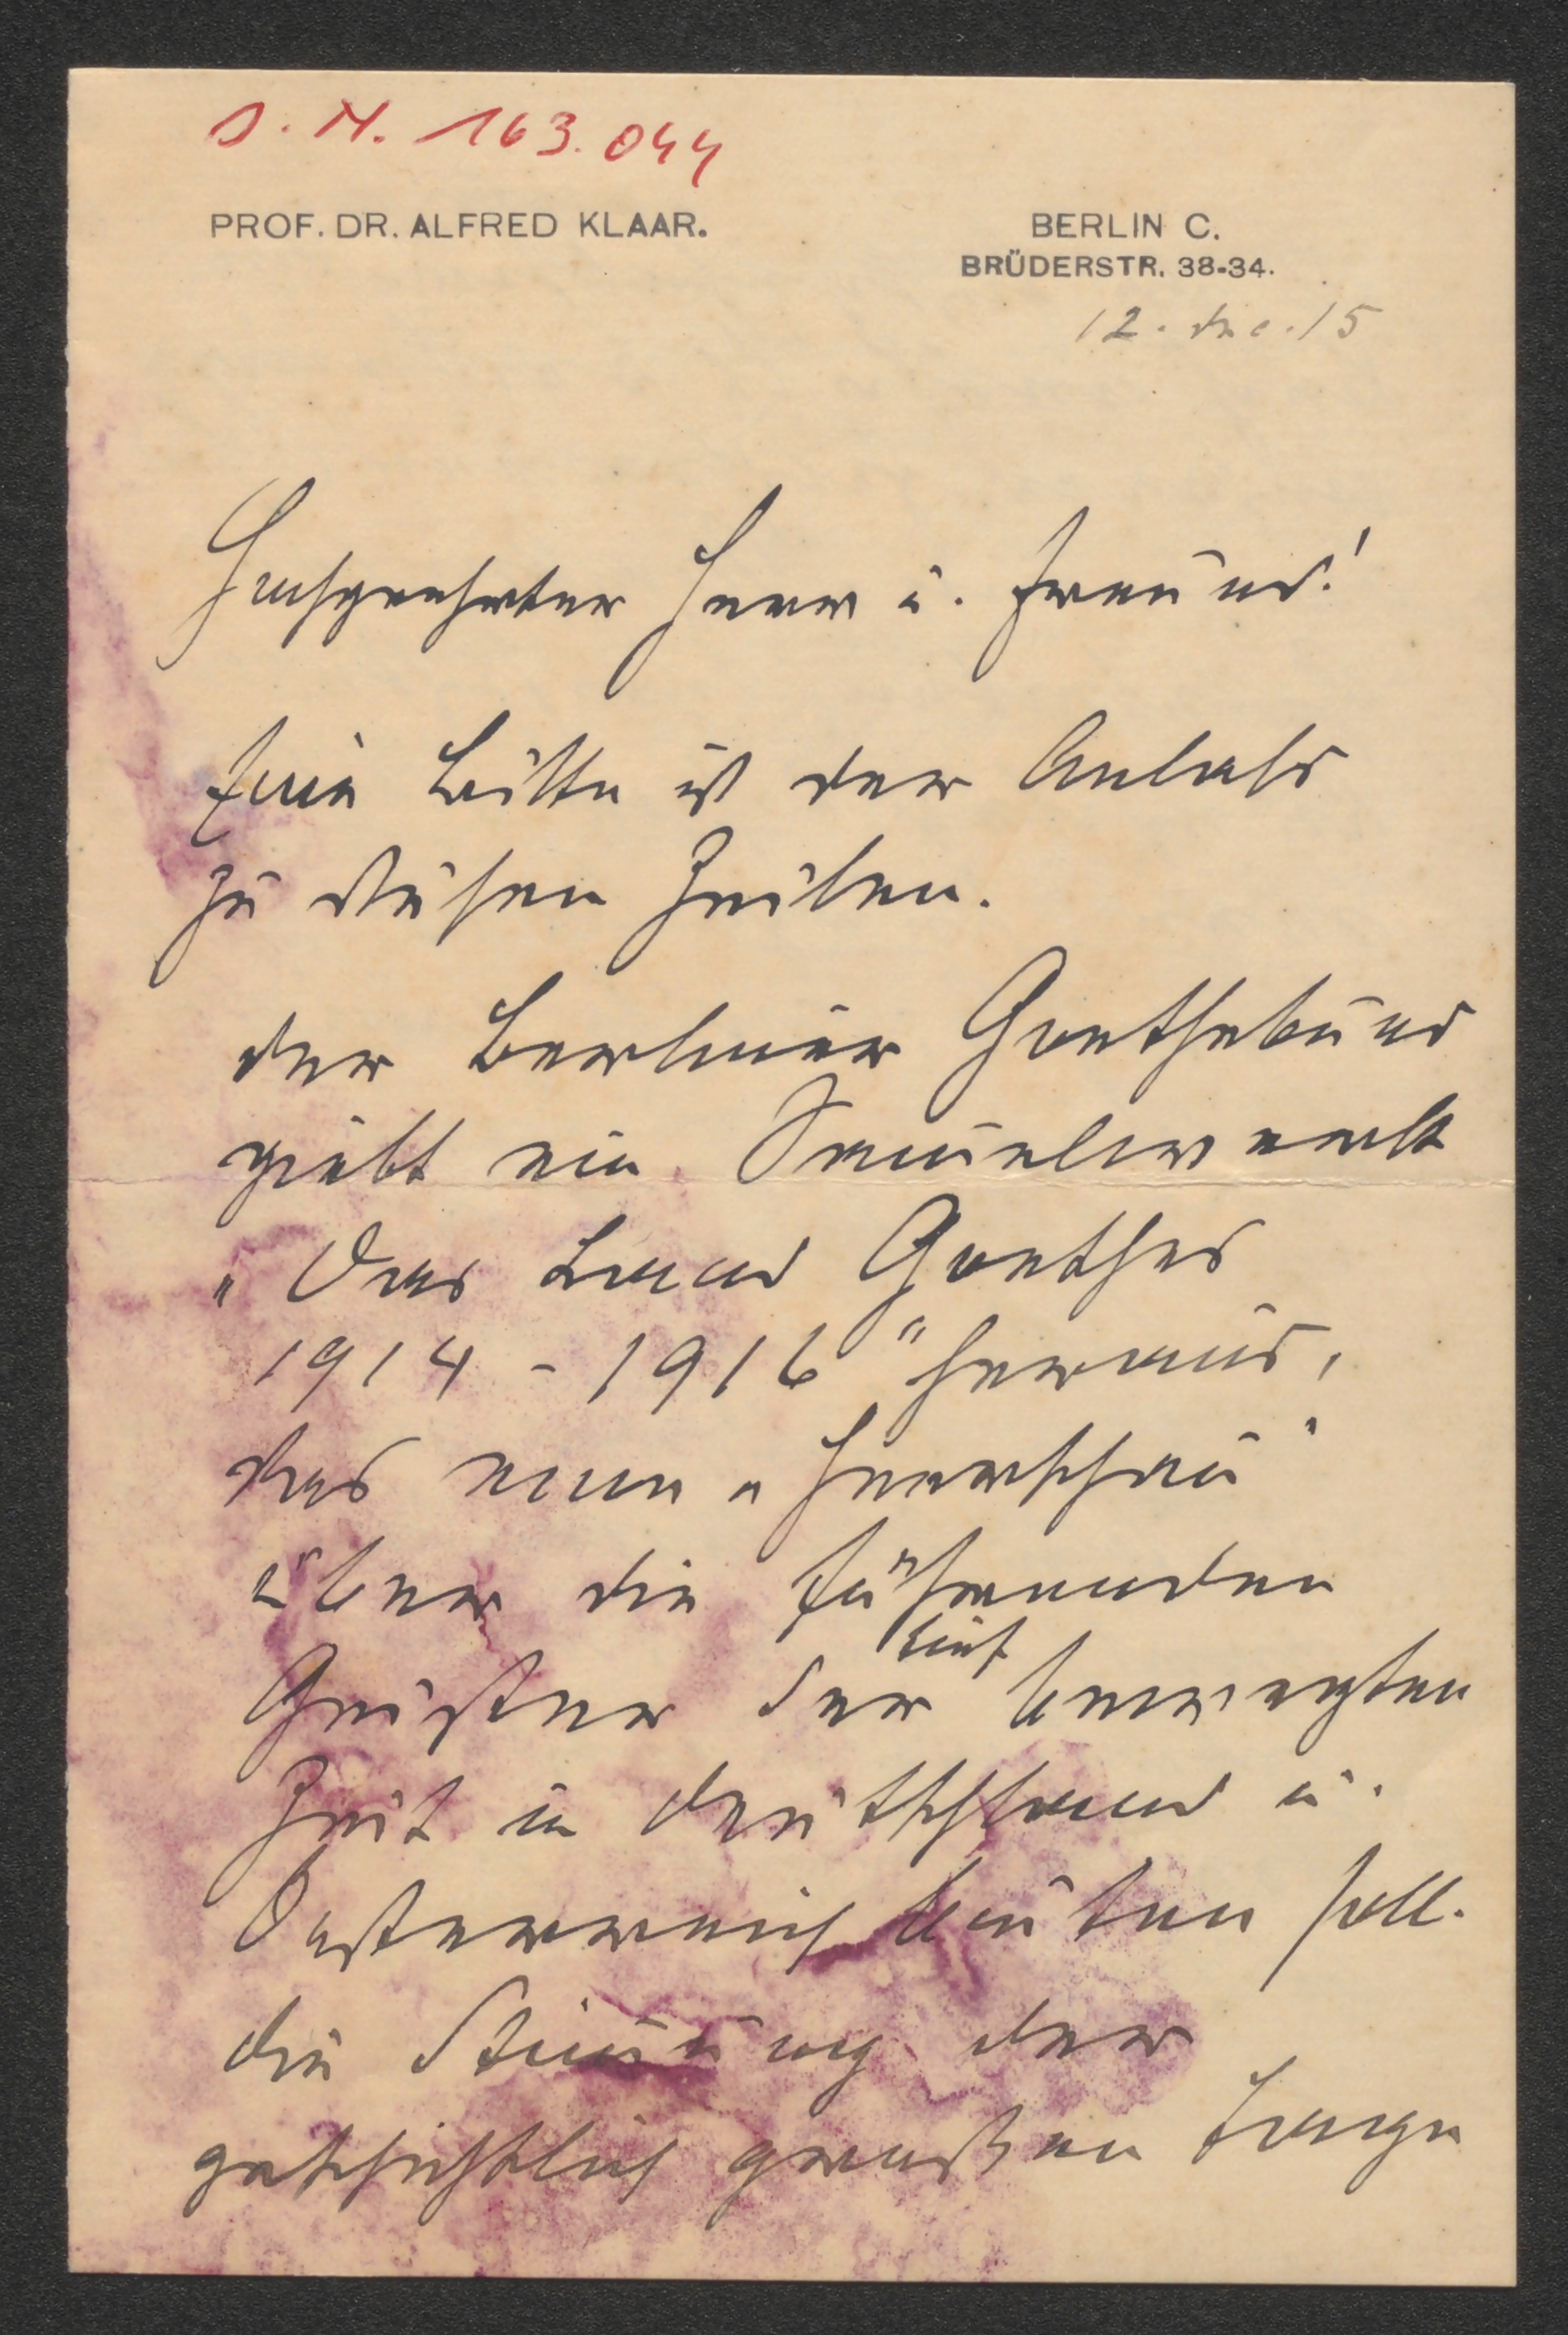 J. N. 163.044
PROF. DR. ALFRED KLAAR.
BERLIN C.
BRÜDERSTR. 33-34.
12. Dec. 15
Hochgeehrter Herr u. Freund!
Eine Bitte ist der Anlass
zu diesen Zeilen.
Der Berliner Goethebund
giebt ein Sammelwerk
„Das Land Goethes
1914 - 1916" heraus,
das eine „Heerschau"
über die führenden
Geister der tief bewegten
Zeit in Deutschland u.
Oesterreich bieten soll.
Die Stimmung der
geschichtlich großen Tage